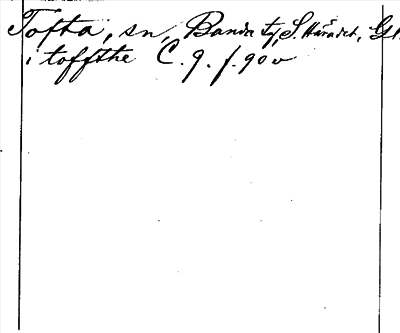 Tofta, sn, Banda tg, S. Häradet, Gtl.
i toffthe C. 9. f. 90 v